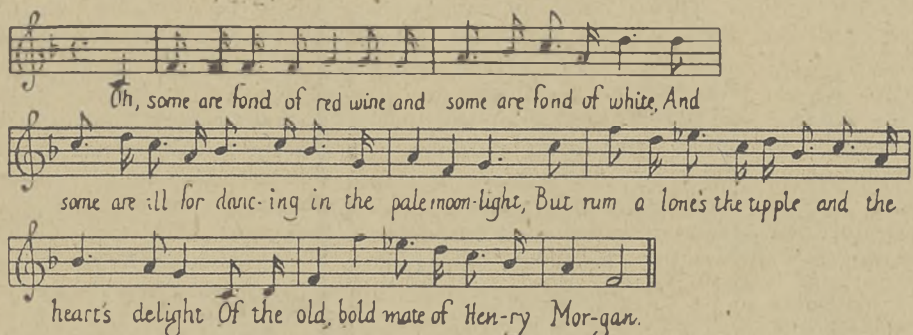 Oh, some are fond of red wine and some are fond of white, And
some are all for danc-ing in the pale moon-light, But rum a lone's the tipple and the
heart's delight Of the old, bold mate of Hen-ry Mor-gan.